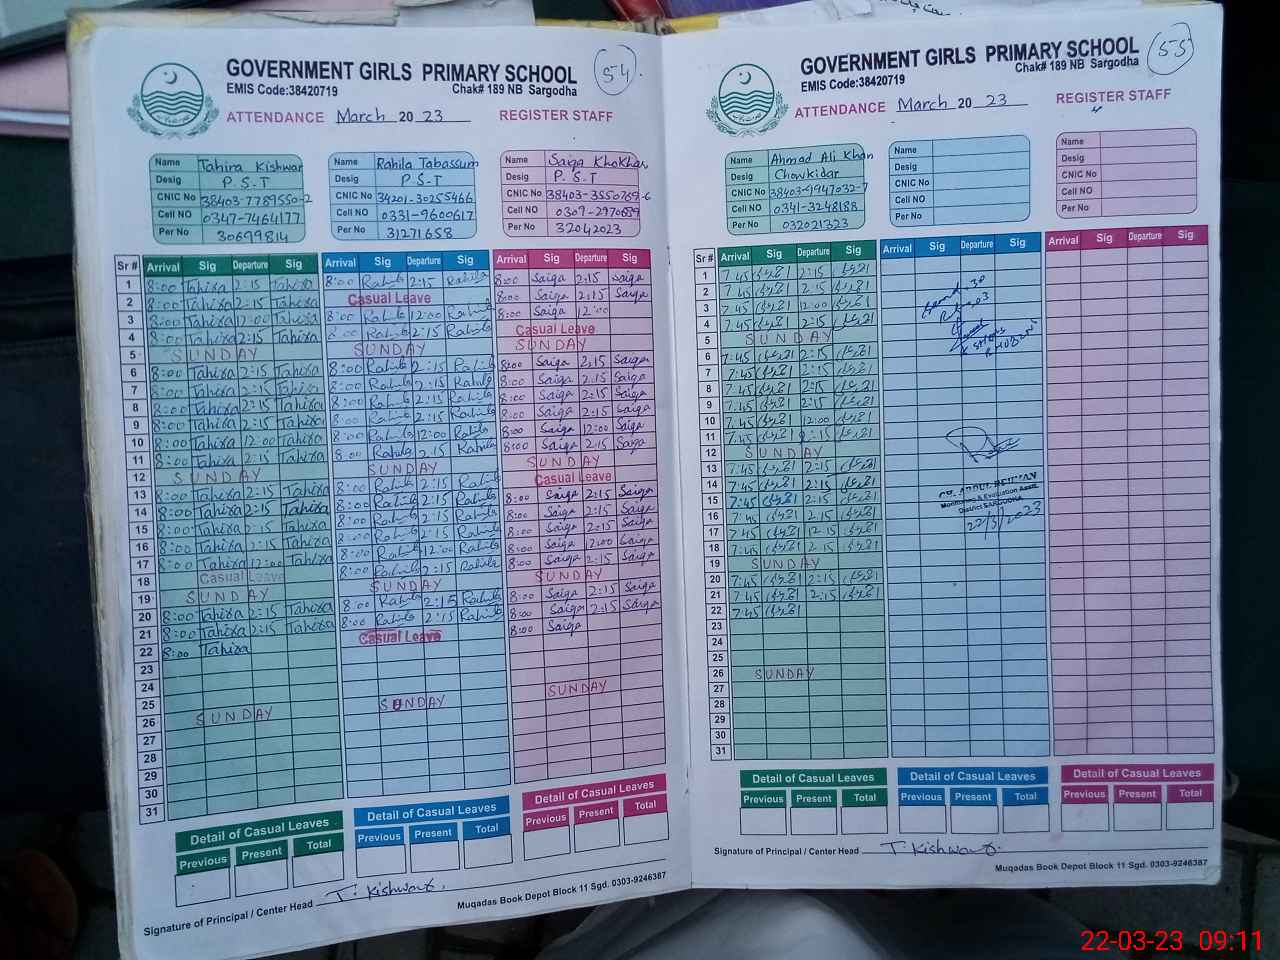 GOVERNMENT GIRLS PRIMARY SCHOOL
54
EMIS Code:38420719
Chak# 189 NB Sargodha
ATTENDANCE March 2023 REGISTER STAFF
Name Tahira Kishwar
Desig P.S.T
CNIC No 38403-7789550-2
Cell NO 0347-7464177
Per No 30699814
Name Rahila Tabassum
Desig P.S.T
CNIC No 34201-30255466
Cell NO 0331-9600617
Per No 31271658
Name Saiga Khokhar
Desig P.S.T
CNIC No 38403-3550769-6
Cell NO
Per No 32042023
Sr # Arrival Sig Departure Sig Arrival Sig Departure Sig Arrival Sig Departure Sig
1 8:00 Tahira 2:15 Tahira 8:00 Rahila 2:15 Rahila 8:00 Saiga 2:15 Saiga
2 8:00 Tahira 2:15 Tahira Casual Leave 8:00 Saiga 2:15 Saiga
3 8:00 Tahira 12:00 Tahira 8:00 Rahila 12:00 Rahila 8:00 Saiga 12:00
4 8:00 Tahira 2:15 Tahira 8:00 Rahila 2:15 Rahila Casual Leave
5 SUNDAY SUNDAY SUNDAY
6 8:00 Tahira 2:15 Tahira 8:00 Rahila 2:15 Rahila 8:00 Saiga 2:15 Saiga
7 8:00 Tahira 2:15 Tahira 8:00 Rahila 2:15 Rahila 8:00 Saiga 2:15 Saiga
8 8:00 Tahira 2:15 Tahira 8:00 Rahila 2:15 Rahila 8:00 Saiga 2:15 Saiga
9 8:00 Tahira 2:15 Tahira 8:00 Rahila 2:15 Rahila 8:00 Saiga 2:15 Saiga
10 8:00 Tahira 12:00 Tahira 8:00 Rahila 12:00 Rahila 8:00 Saiga 12:00 Saiga
11 8:00 Tahira 2:15 Tahira 8:00 Rahila 2:15 Rahila 8:00 Saiga 2:15 Saiga
12 SUNDAY SUNDAY SUNDAY
13 8:00 Tahira 2:15 Tahira 8:00 Rahila 2:15 Rahila Casual Leave
14 8:00 Tahira 2:15 Tahira 8:00 Rahila 2:15 Rahila 8:00 Saiga 2:15 Saiga
15 8:00 Tahira 2:15 Tahira 8:00 Rahila 2:15 Rahila 8:00 Saiga 2:15 Saiga
16 8:00 Tahira 2:15 Tahira 8:00 Rahila 2:15 Rahila 8:00 Saiga 2:15 Saiga
17 8:00 Tahira 12:00 Tahira 8:00 Rahila 12:00 Rahila 8:00 Saiga 12:00 Saiga
18 Casual Leave 8:00 Rahila 2:15 Rahila 8:00 Saiga 2:15 Saiga
19 SUNDAY SUNDAY SUNDAY
20 8:00 Tahira 2:15 Tahira 8:00 Rahila 2:15 Rahila 8:00 Saiga 2:15 Saiga
21 8:00 Tahira 2:15 Tahira 8:00 Rahila 2:15 Rahila 8:00 Saiga 2:15 Saiga
22 8:00 Tahira Casual Leave 8:00 Saiga
23
24
25
26 SUNDAY SUNDAY SUNDAY
27
28
29
30
31
Detail of Casual Leaves Detail of Casual Leaves Detail of Casual Leaves
Previous Present Total Previous Present Total Previous Present Total
Signature of Principal / Center Head T. Kishwar
Muqadas Book Depot Block 11 Sgd. 0303-9246387
GOVERNMENT GIRLS PRIMARY SCHOOL
55
EMIS Code:38420719
Chak# 189 NB Sargodha
ATTENDANCE March 2023 REGISTER STAFF
Name Ahmad Ali Khan
Desig Chowkidar
CNIC No 38403-9947032-7
Cell NO 0341-3248188
Per No 032021323
Name
Desig
CNIC No
Cell NO
Per No
Name
Desig
CNIC No
Cell NO
Per No
Sr # Arrival Sig Departure Sig Arrival Sig Departure Sig Arrival Sig Departure Sig
1 7:45 2:15
2 7:45 2:15
3 7:45 12:00
4 7:45 2:15
5 SUNDAY
6 7:45 2:15
7 7:45 2:15
8 7:45 2:15
9 7:45 2:15
10 7:45 12:00
11 7:45 2:15
12 SUNDAY
13 7:45 2:15
14 7:45 2:15
15 7:45 2:15
16 7:45 2:15
17 7:45 12:15
18 7:45 2:15
19 SUNDAY
20 7:45 2:15
21 7:45 2:15
22 7:45
23
24
25
26 SUNDAY
27
28
29
30
31
Monitoring & Evaluation
District SARGODHA
22/3/2023
Detail of Casual Leaves Detail of Casual Leaves Detail of Casual Leaves
Previous Present Total Previous Present Total Previous Present Total
Signature of Principal / Center Head T. Kishwar
Muqadas Book Depot Block 11 Sgd. 0303-9246387
22-03-23 09:11